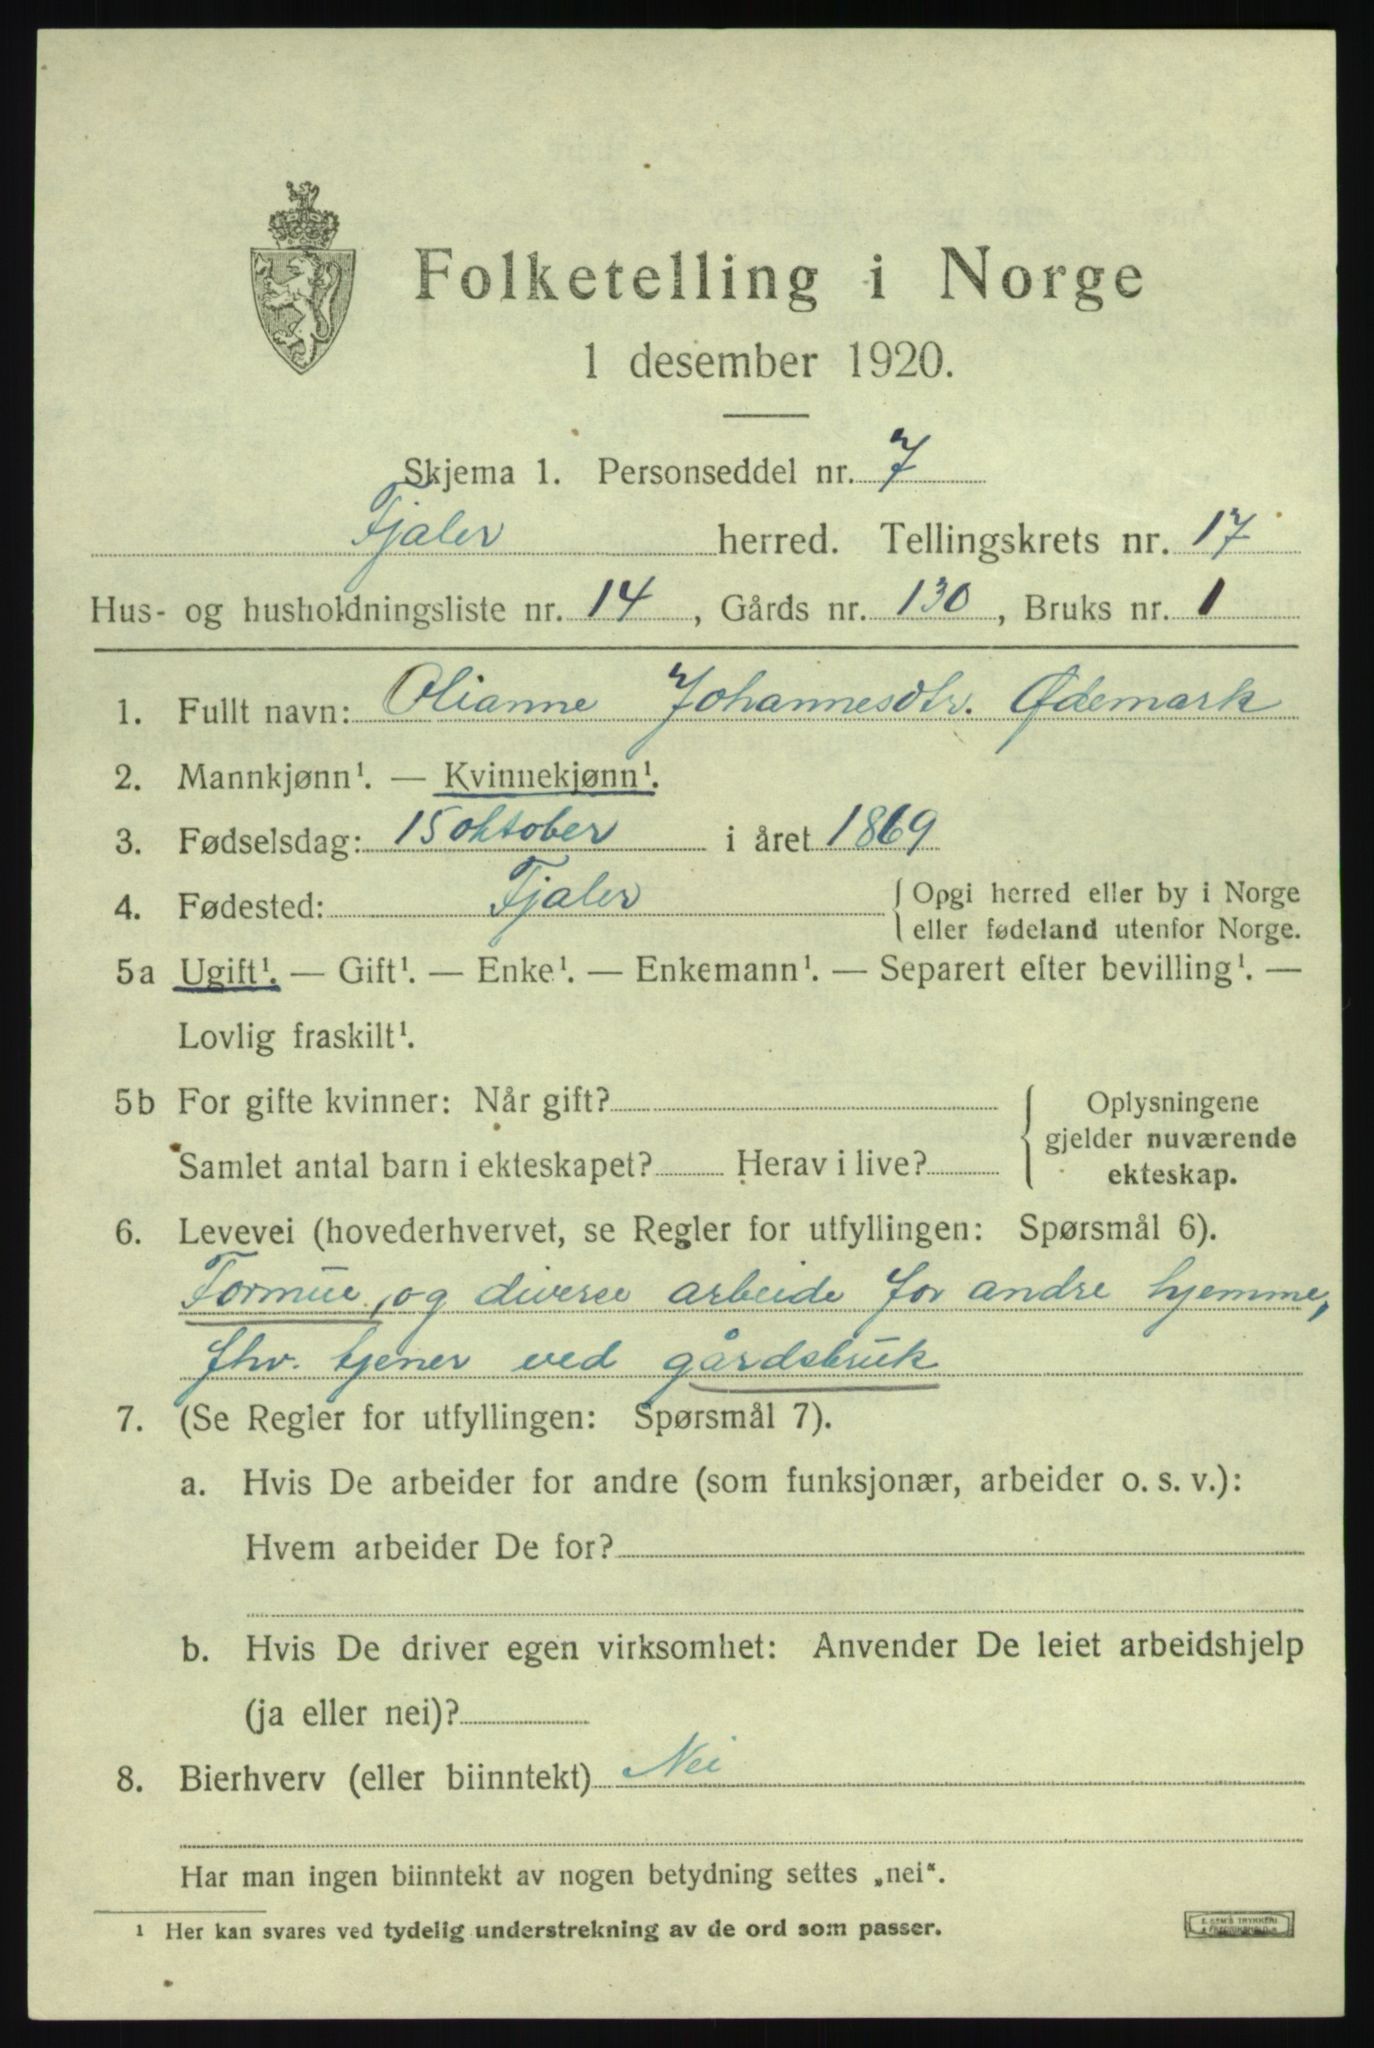 Folketelling i Norge
1 desember 1920.
Skjema 1. Personseddel nr. 7
Fjaler herred. Tellingskrets nr. 17
Hus- og husholdningsliste nr. 14, Gårds nr. 130, Bruks nr. 1
1. Fullt navn: Olianne Johannesdtr. Ødemark
2. Mannkjønn¹. — Kvinnekjønn¹.
3. Fødselsdag: 15 oktober i året 1869
4. Fødested: Fjaler { Opgi herred eller by i Norge
eller fødeland utenfor Norge.
5a Ugift¹. — Gift¹. — Enke¹. — Enkemann¹. — Separert efter bevilling¹. —
Lovlig fraskilt¹.
5b For gifte kvinner: Når gift? { Oplysningene
gjelder nuværende
Samlet antal barn i ekteskapet? Herav i live? ekteskap.
6. Levevei (hovederhvervet, se Regler for utfyllingen: Spørsmål 6).
Formue, og diverse arbeide for andre hjemme,
fhv. tjener ved gårdsbruk
7. (Se Regler for utfyllingen: Spørsmål 7).
a. Hvis De arbeider for andre (som funksjonær, arbeider o. s. v.):
Hvem arbeider De for?
b. Hvis De driver egen virksomhet: Anvender De leiet arbeidshjelp
(ja eller nei)?
8. Bierhverv (eller biinntekt) Nei
Har man ingen biinntekt av nogen betydning settes „nei“.
¹ Her kan svares ved tydelig understrekning av de ord som passer.